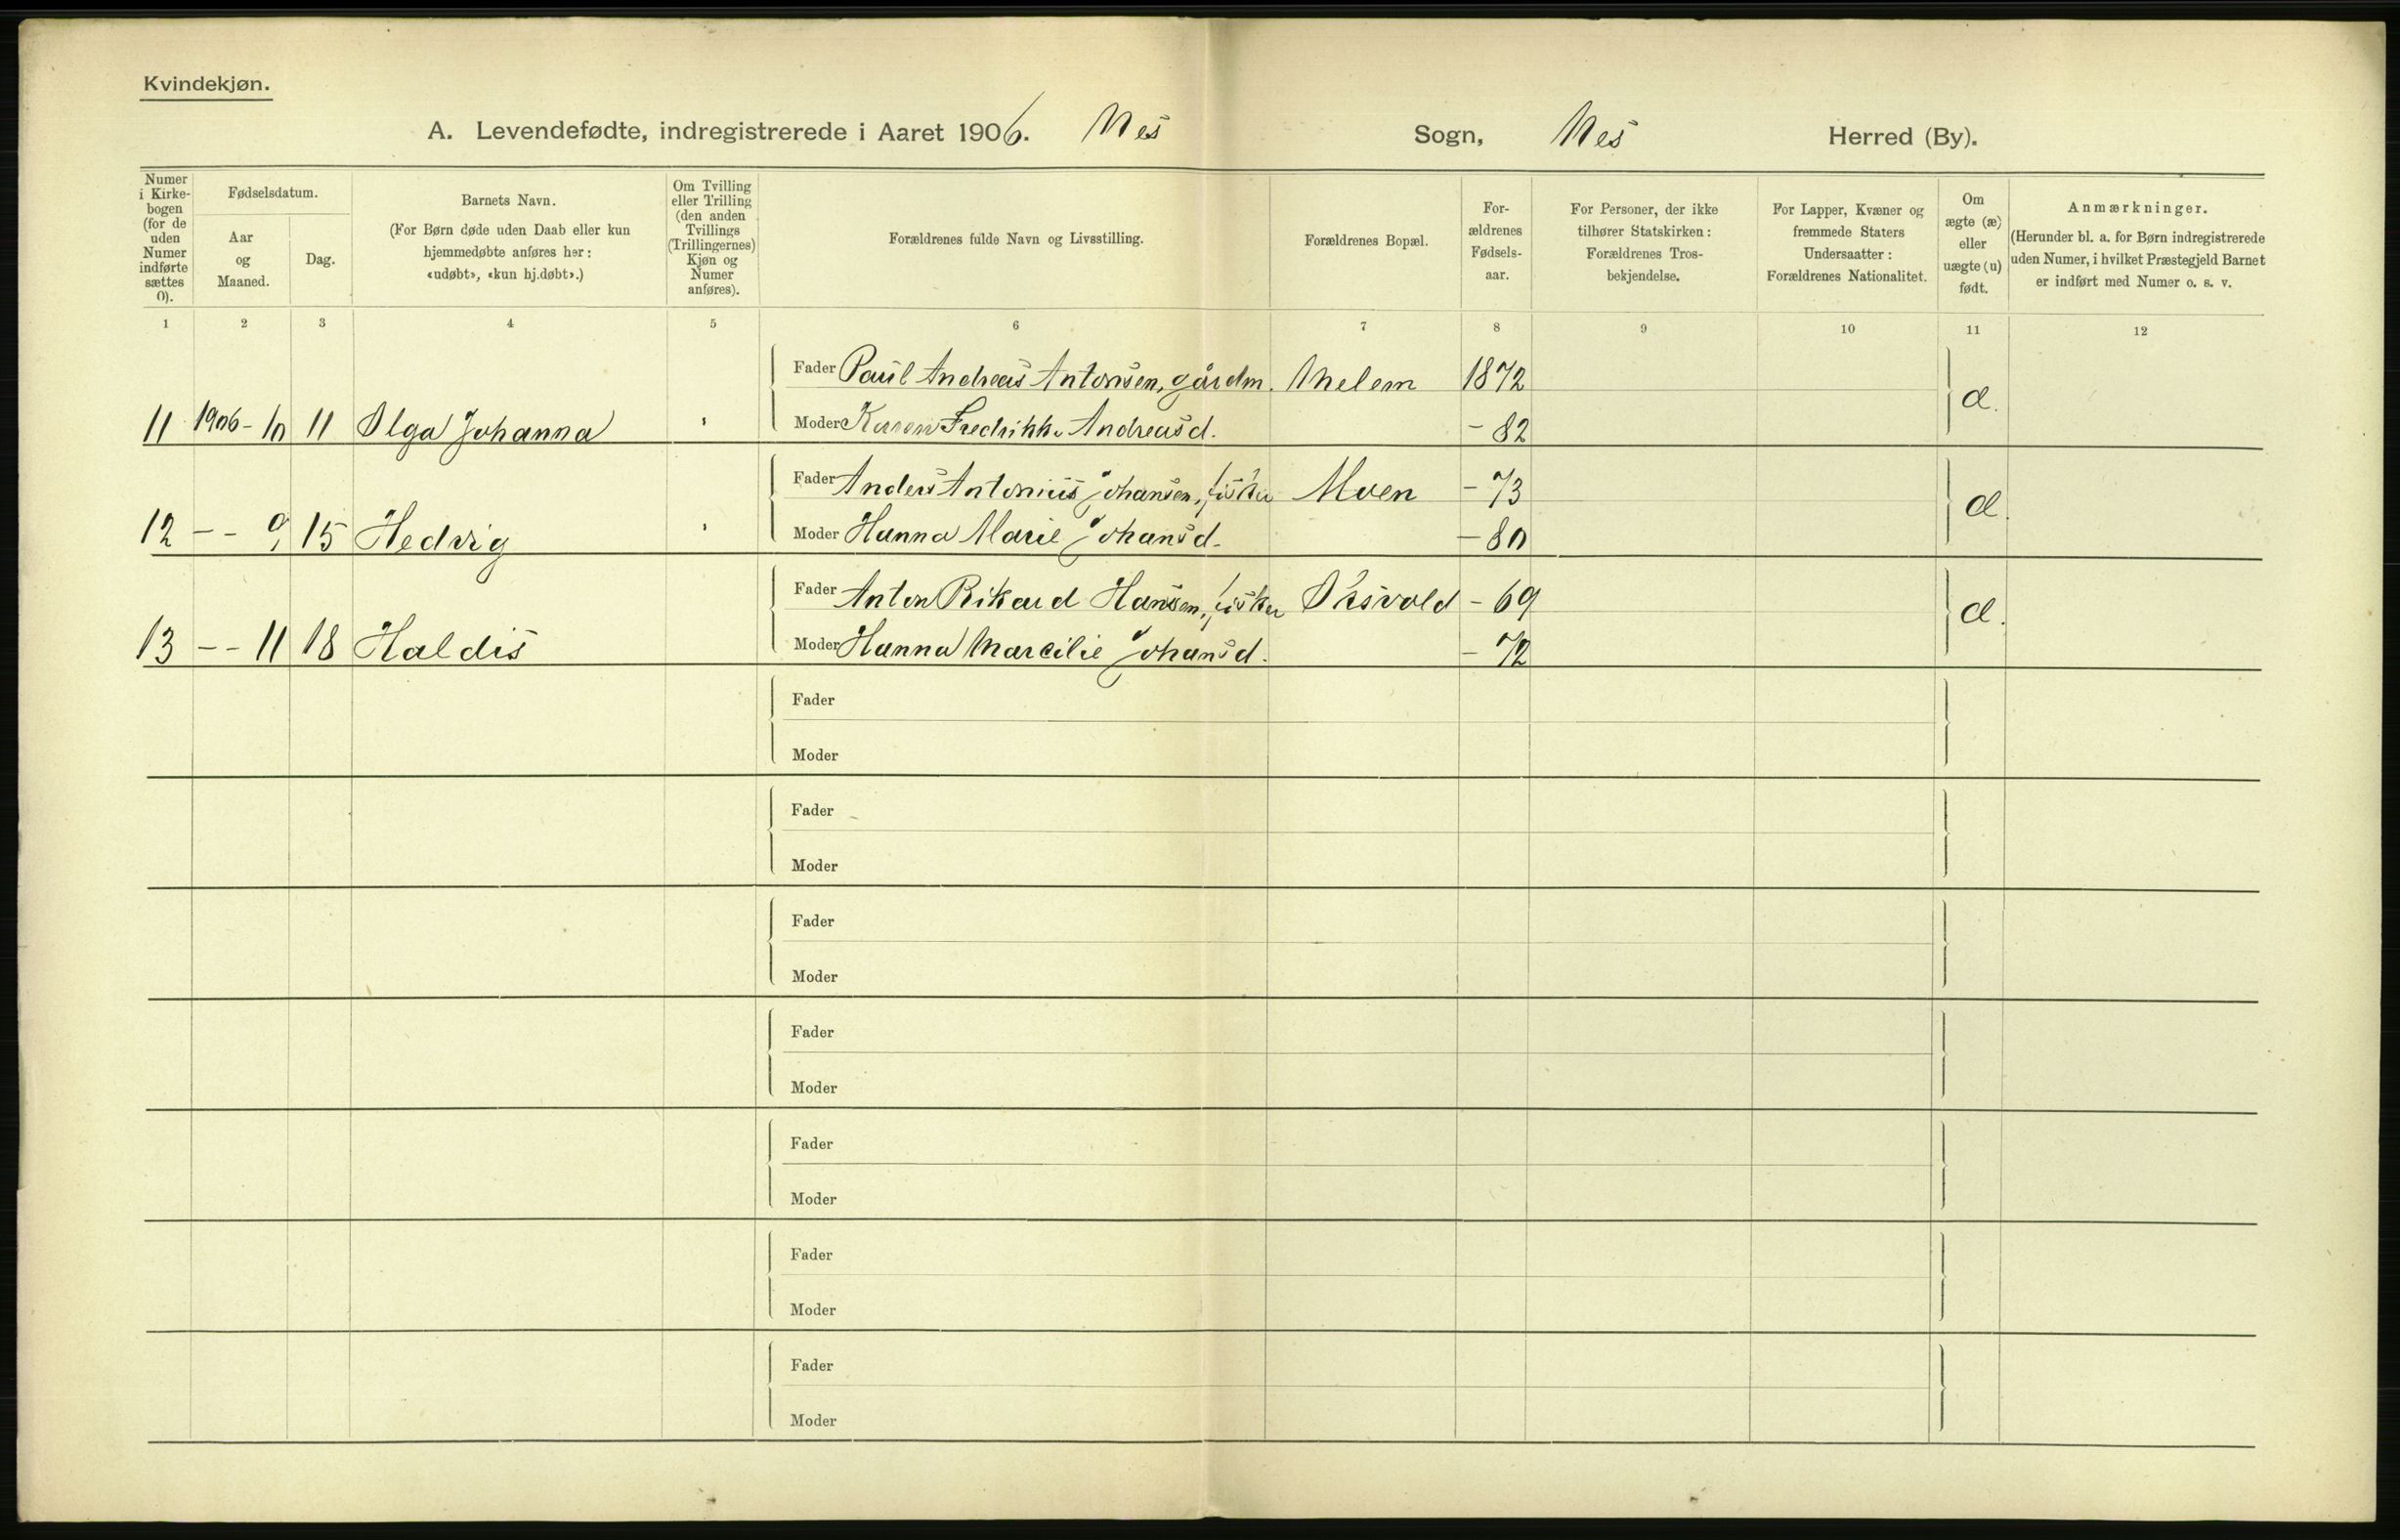 Kvindekjøn.
A. Levendefødte, indregistrerede i Aaret 1906. Nes Sogn, Nes Herred (By).
Numer i Kirkebogen (for de uden Numer indførte sættes 0).
Fødselsdatum.
Aar og Maaned.
Dag.
Barnets Navn.
(For Børn døde uden Daab eller kun hjemmedøbte anføres her: «udøbt», «kun hj.døbt».)
Om Tvilling eller Trilling (den anden Tvillings (Trillingernes) Kjøn og Numer anføres).
Forældrenes fulde Navn og Livsstilling.
Forældrenes Bopæl.
For-ældrenes Fødsels-aar.
For Personer, der ikke tilhører Statskirken: Forældrenes Tros-bekjendelse.
For Lapper, Kvæner og fremmede Staters Undersaatter: Forældrenes Nationalitet.
Om ægte (æ) eller uægte (u) født.
Anmærkninger.
(Herunder bl. a. for Børn indregistrerede uden Numer, i hvilket Præstegjeld Barnet er indført med Numer o. s. v.
1 2 3 4 5 6 7 8 9 10 11 12
Fader Paul Andreas Antonsen, gårdm. Melem 1872
11 1906-10 11 Olga Johanna Moder Karen Fredrikke Andreasd. - 82 æ.
Fader Anders Antonius Johansen, fisker Moen - 73
12 - - 9 15 Hedvig Moder Hanna Marie Johansd. - 80 æ.
Fader Anton Rikard Hansen, fisker - 69
13 - - 11 18 Haldis Moder Hanna Marcilie Johansd. - 72 æ.
Fader
Moder
Fader
Moder
Fader
Moder
Fader
Moder
Fader
Moder
Fader
Moder
Fader
Moder